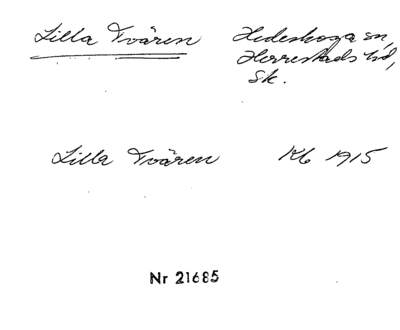 Lilla Tvären Hedeskoga sn,
Herrestads hd,
Sk.
Lilla Tvären Kb 1915
Nr 21685